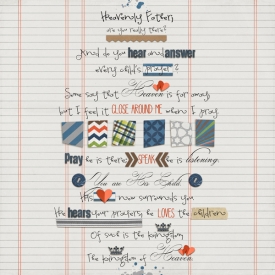 Heavenly Father,
are you really there?
And do you hear and answer
every child's prayer?
Some say that Heaven is far away
but I feel it CLOSE AROUND ME when I pray.
Pray he is there SPEAK he is listening.
You are His Child
His now surrounds you
He hears your prayers, he LOVES the children
Of such is the kingdom
The kingdom of Heaven